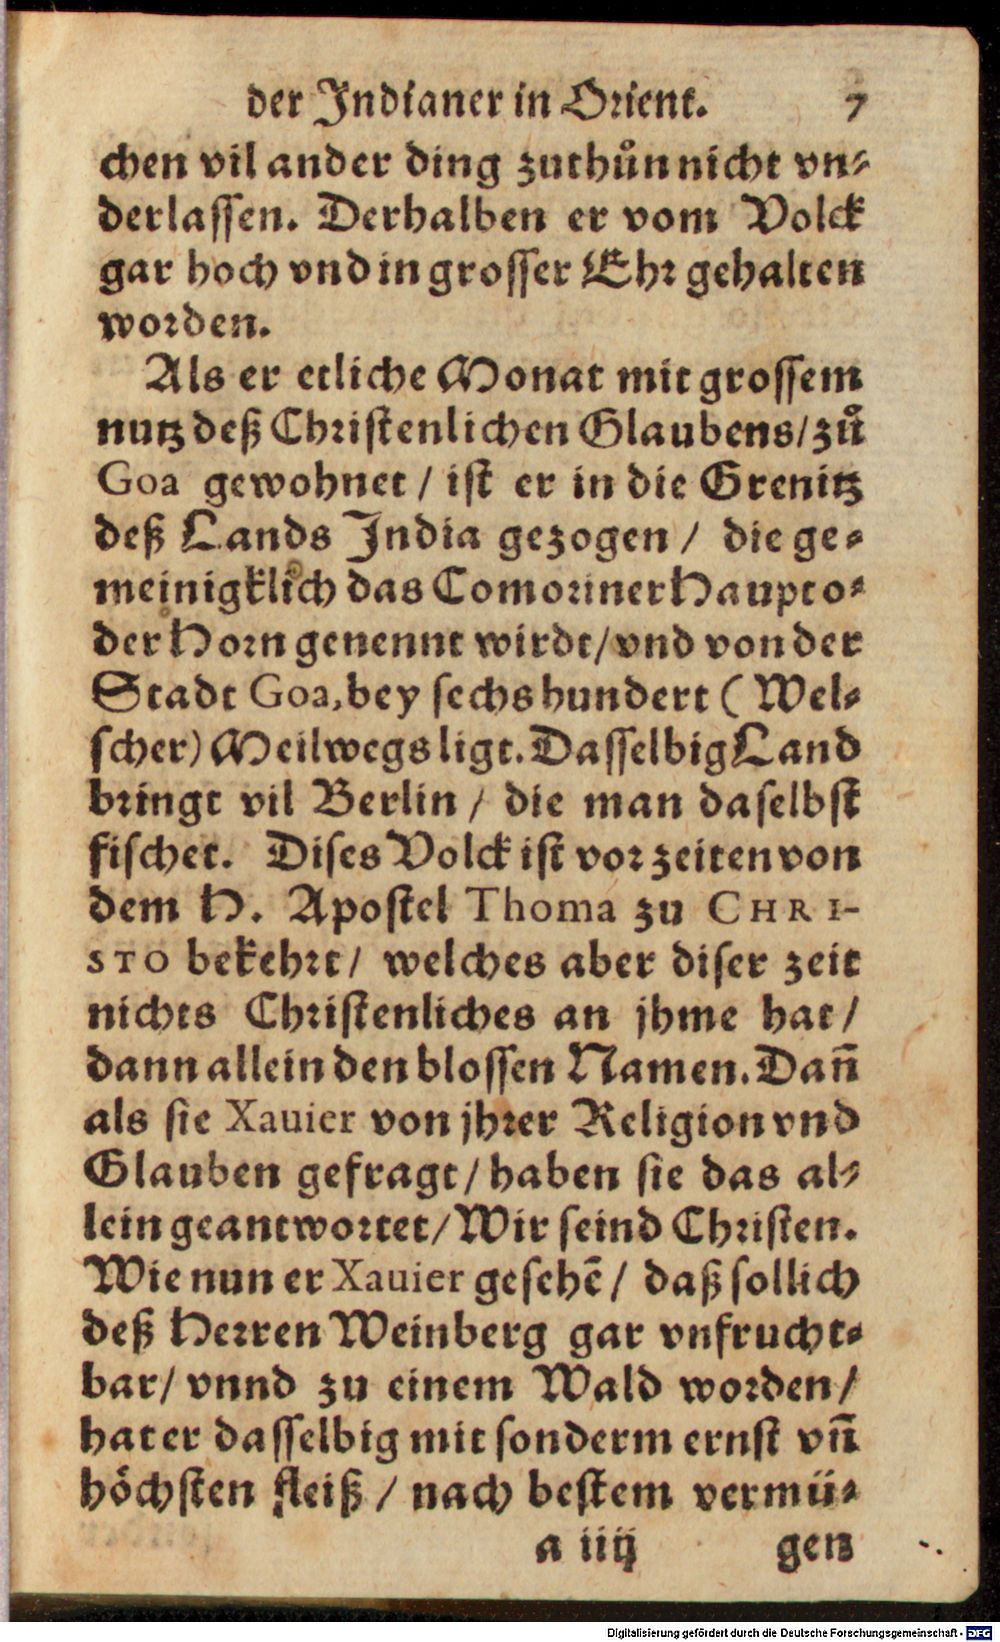 der Indianer in Orient. 7
chen vil ander ding zuthůn nicht vn-
derlassen. Derhalben er vom Volck
gar hoch vnd in grosser Ehr gehalten
worden.
Als er etliche Monat mit grossem
nutz deß Christenlichen Glaubens/ zů
Goa gewohnet / ist er in die Grenitz
deß Lands India gezogen / die ge-
meinigklich das Comoriner Haupt o-
der Horn genennt wirdt/ vnd von der
Stadt Goa, bey sechs hundert (Wel-
scher) Meilwegs ligt. Dasselbig Land
bringt vil Berlin / die man daselbst
fischet. Dises Volck ist vor zeiten von
dem H. Apostel Thoma zu CHRI-
STO bekehrt / welches aber diser zeit
nichts Christenliches an jhme hat /
dann allein den blossen Namen. Dañ
als sie Xauier von jhrer Religion vnd
Glauben gefragt / haben sie das al-
lein geantwortet/ Wir seind Christen.
Wie nun er Xauier gesehē / daß sollich
deß Herren Weinberg gar vnfrucht-
bar / vnnd zu einem Wald worden /
hat er dasselbig mit sonderm ernst vñ
höchsten fleiß / nach bestem vermü-
a iiij gen
Digitalisierung gefördert durch die Deutsche Forschungsgemeinschaft - DFG